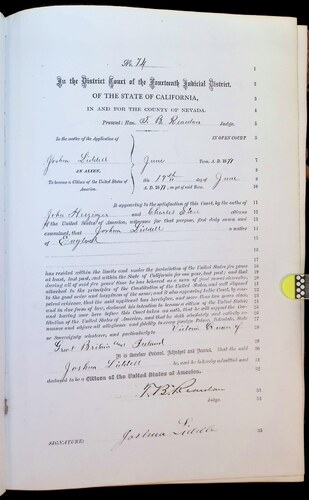 No. 74
In the District Court of the Fourteenth Judicial District,
OF THE STATE OF CALIFORNIA,
IN AND FOR THE COUNTY OF NEVADA.
Present: Hon. T. B. Reardan Judge.
In the matter of the Application of
IN OPEN COURT
Joshua Liddell
June Term, A. D. 18
AN ALIEN,
this 19th day of June
To become a Citizen of the United States of
America.
A. D. 18
It appearing to the satisfaction of this Court, by the oaths of
John and Charles citizens
of the United States of America, witnesses for that purpose, first duly sworn and
examined, that Joshua Liddell a native
of England
has resided within the limits and under the jurisdiction of the United States five years
at least, last past, and within the State of California for one year, last past; and that
during all of said five years' time he has behaved as a man of good moral character,
attached to the principles of the Constitution of the United States, and well disposed
to the good order and happiness of the same; and it also appearing to the Court, by com-
petent evidence, that the said applicant has heretofore, and more than two years since,
and in due form of law, declared his intention to become a citizen of the United States
and having now here before this Court taken an oath, that he will support the Con-
stitution of the United States of America, and that he doth absolutely and entirely re-
nounce and abjure all allegiance and fidelity to every foreign Prince, Potentate, State
or Sovereignty whatever, and particularly to Victoria Queen of
Great Britain and Ireland
It is therefore Ordered, Adjudged and Decreed, That the said
Joshua Liddell be, and he hereby admitted and
declared to be a Citizen of the United States of America.
T. B. Reardan
Judge.
SIGNATURE: Joshua Liddell